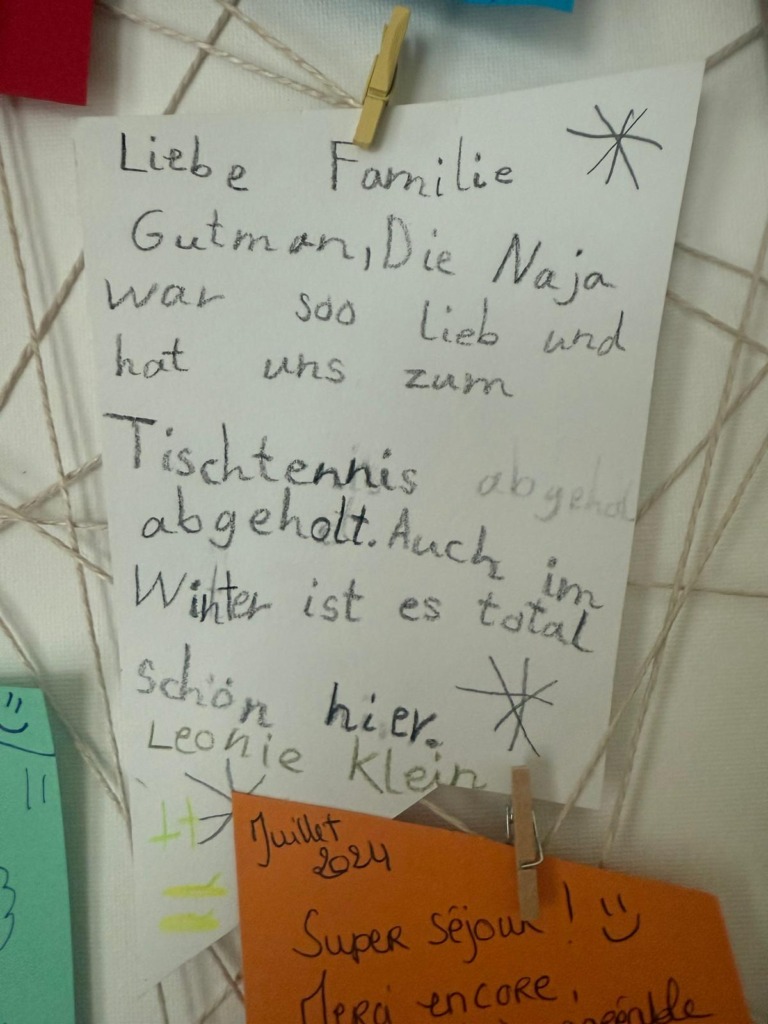 Liebe Familie
Gutman, Die Naja
war soo lieb und
hat uns zum
Tischtennis abgehol
abgeholt. Auch im
Winter ist es total
schön hier.
Leonie Klein
Juillet
2024
Super séjour !
Merci encore,